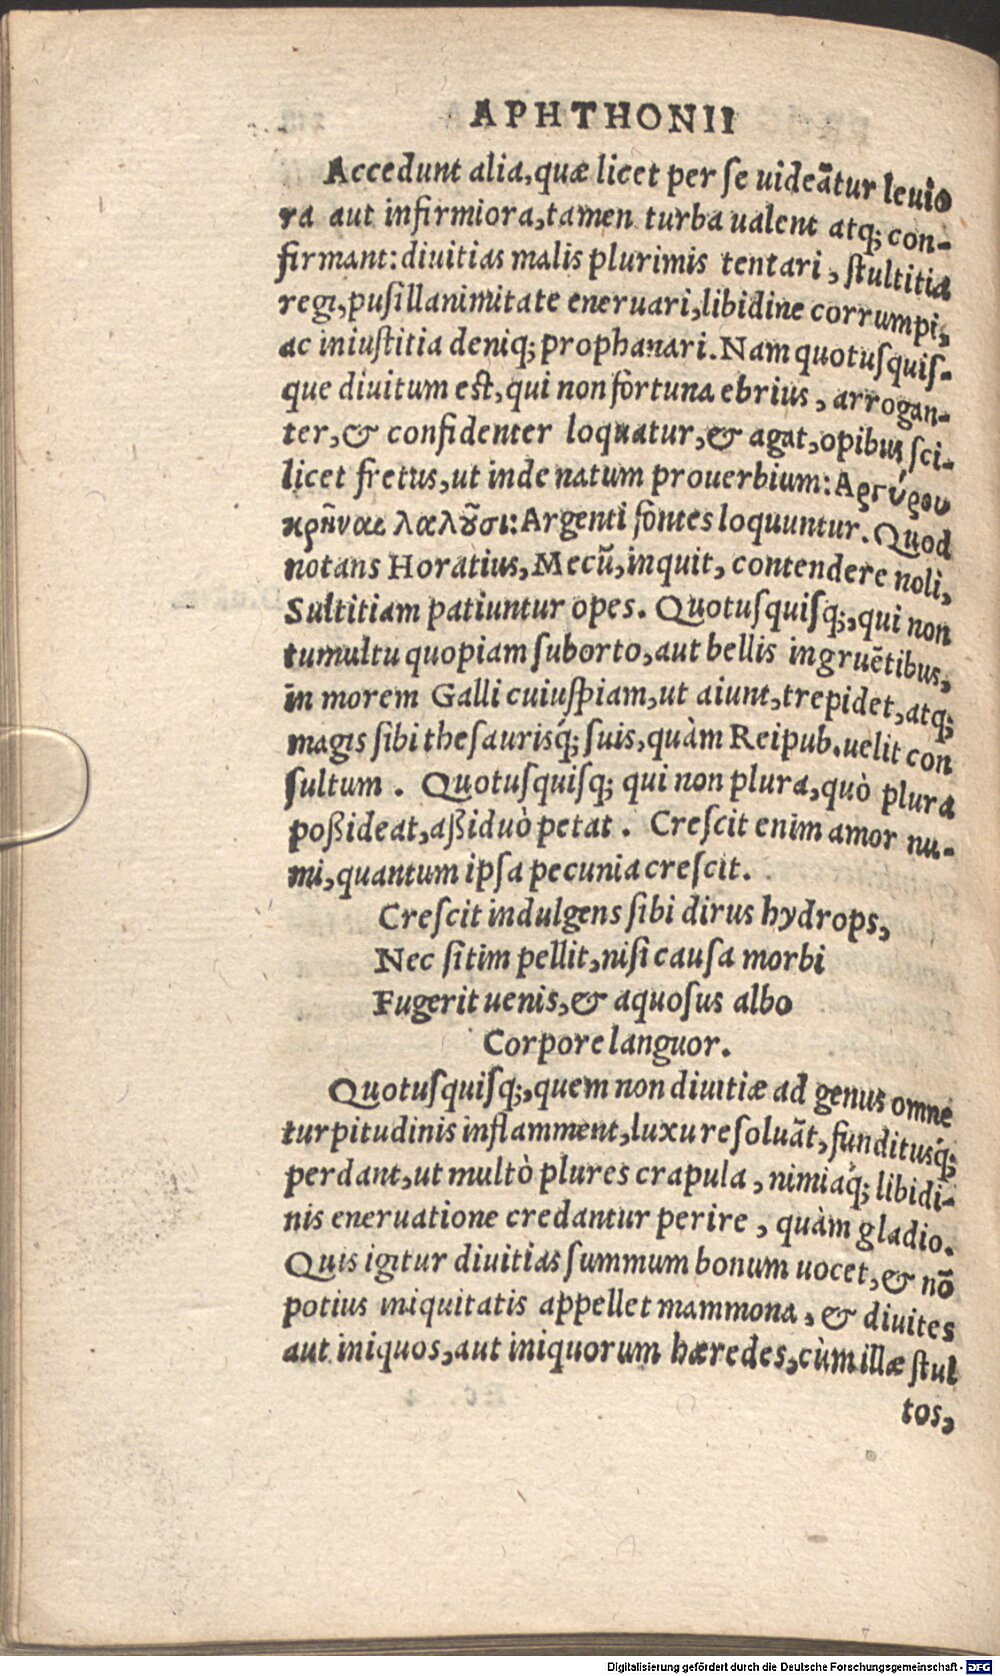 APHTHONII
Accedunt alia, quæ licet per se uideātur leuio
ra aut infirmiora, tamen turba ualent atq; con-
firmant: diuitias malis plurimis tentari, stultitia
regi, pusillanimitate eneruari, libidine corrumpi,
ac iniustitia deniq; prophanari. Nam quotusquis-
que diuitum est, qui non fortuna ebrius, arrogan-
ter, & confidenter loquatur, & agat, opibus sci-
licet fretus, ut inde natum prouerbium: Αργύρου
κρῆναι λαλοῦσι: Argenti fontes loquuntur. Quod
notans Horatius, Mecū, inquit, contendere noli,
Sultitiam patiuntur opes. Quotusquisq;, qui non
tumultu quopiam suborto, aut bellis ingruētibus,
in morem Galli cuiuspiam, ut aiunt, trepidet, atq;
magis sibi thesaurisq́; suis, quàm Reipub. uelit con
sultum. Quotusquisq; qui non plura, quò plura
poßideat, aßiduò petat. Crescit enim amor nu-
mi, quantum ipsa pecunia crescit.
Crescit indulgens sibi dirus hydrops,
Nec sitim pellit, nisi causa morbi
Fugerit uenis, & aquosus albo
Corpore languor.
Quotusquisq;, quem non diuitiæ ad genus omne
turpitudinis inflamment, luxu resoluāt, funditusq́;
perdant, ut multò plures crapula, nimiaq́; libidi-
nis eneruatione credantur perire, quàm gladio.
Quis igitur diuitias summum bonum uocet, & nō
potius iniquitatis appellet mammona, & diuites
aut iniquos, aut iniquorum hæredes, cùm illæ stul
tos,
Digitalisierung gefördert durch die Deutsche Forschungsgemeinschaft - DFG